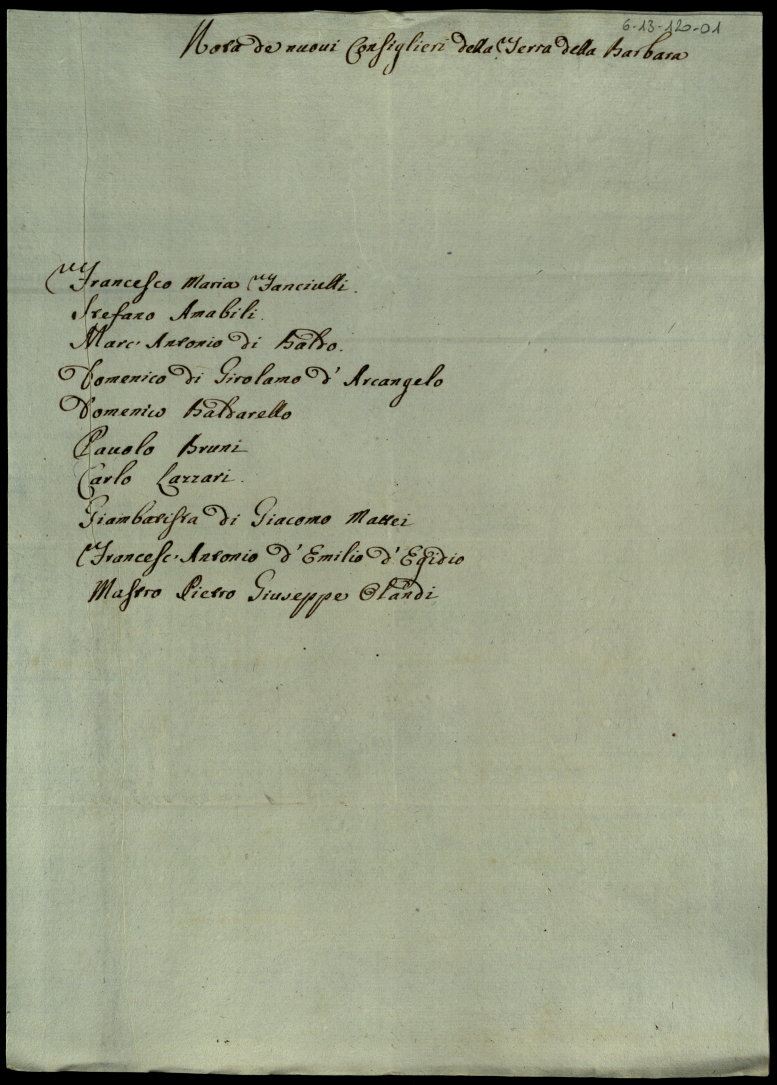 6-13-120-01
Nota de nuoui Consiglieri della Terra della Barbara
Francesco Maria Fanciulli.
Stefano Amabili.
Marc'Antonio di Baldo.
Domenico di Girolamo d'Arcangelo
Domenico Baldarello
Pauolo Bruni
Carlo Lazzari.
Giambatista di Giacomo Mattei
Francesc'Antonio d'Emilio d'Egidio
Mastro Pietro Giuseppe Olandi